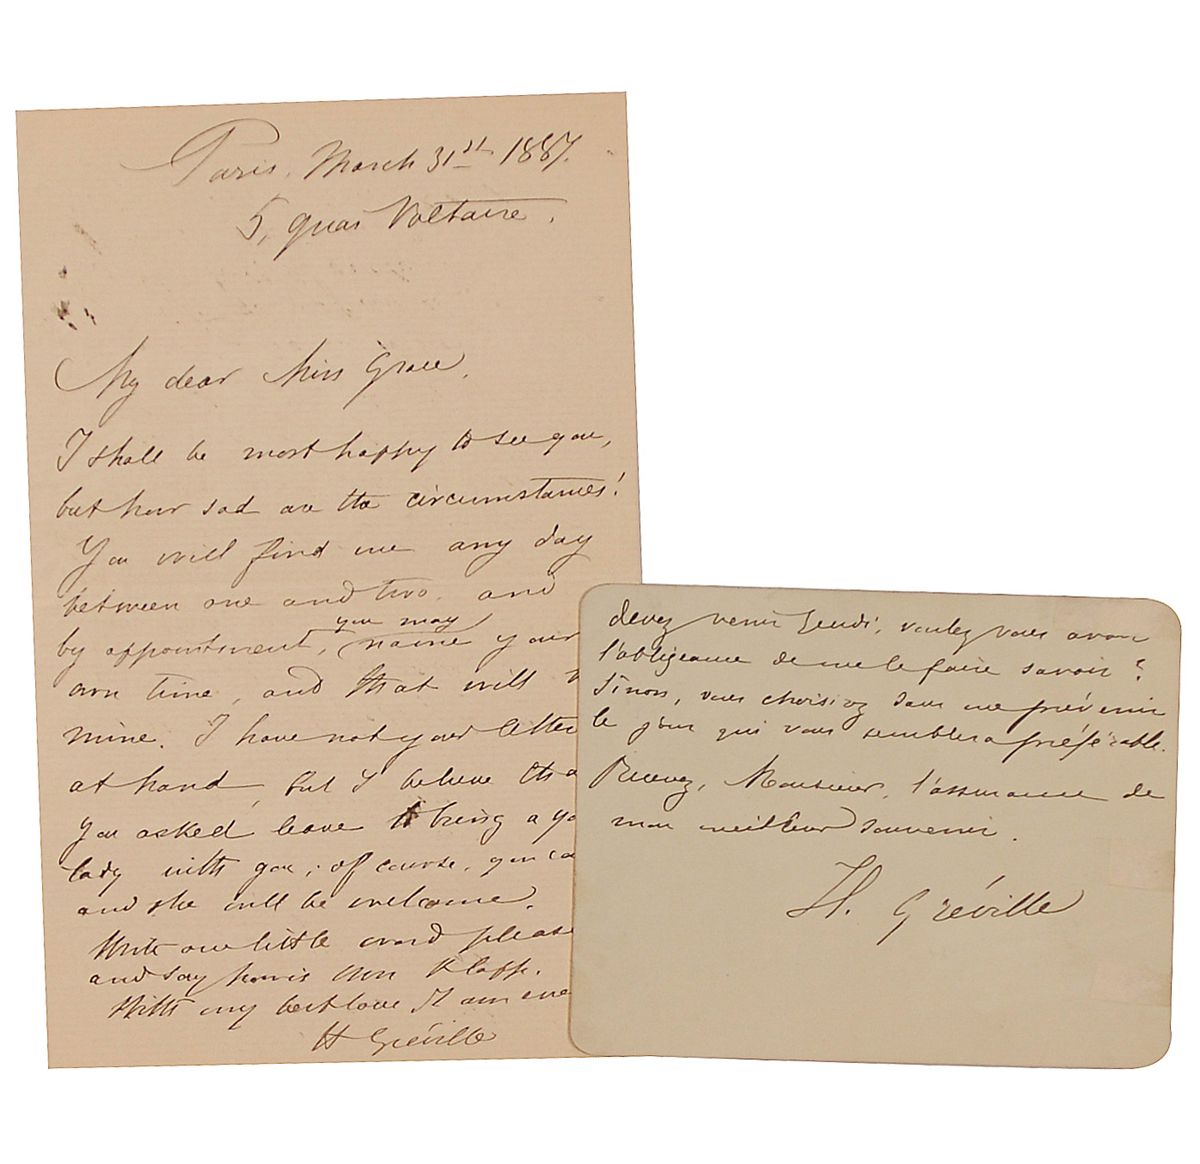 Paris, March 31st 1887.
5, quai Voltaire.
My dear Miss Grace,
I shall be most happy to see you,
but how sad are the circumstances!
You will find me any day
between one and two, and
by appointment, you may name your
own time, and that will
mine. I have not your letter
at hand, but I believe tha
you asked leave to bring a yo
lady with you; of course, you ca
and she will be welcome.
Write one little word please
and say how is
With my best love I am eve
H Gréville
devez venir Jeudi, voulez vous avoir
l'obligeance de me le faire savoir?
Sinon, vous choisirez sans me prévenir
le jour qui vous semblera préférable.
Recevez, Monsieur, l'assurance de
mon meilleur souvenir.
H. Gréville